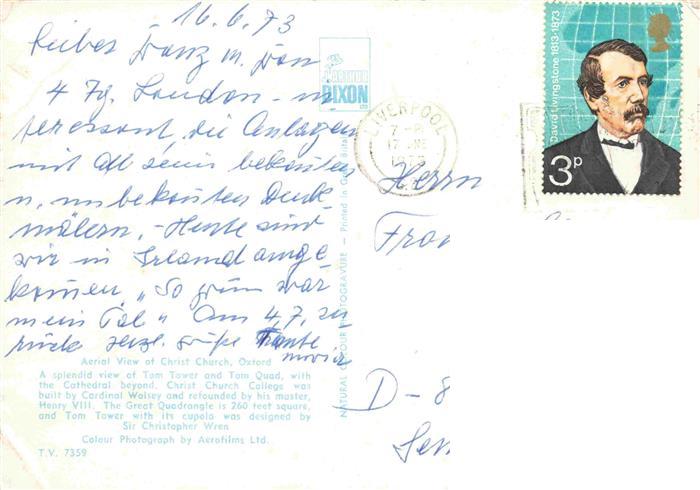 16.6.73
Liebes Franz m. Frau
4 Tg. London - in
teressant, die Anlagen
mit all seinen bekannten
u. unbekannten Denk-
mälern. - Heute sind
wir in Irland ange
kommen, "So grün war
mein Tal" Am 4.7. zu
rück herzl. Grüße Tante
Maria
Aerial View of Christ Church, Oxford
A splendid view of Tom Tower and Tom Quad, with
the Cathedral beyond. Christ Church College was
built by Cardinal Wolsey and refounded by his master,
Henry VIII. The Great Quadrangle is 260 feet square,
and Tom Tower with its cupola was designed by
Sir Christopher Wren
Colour Photograph by Aerofilms Ltd.
T.V. 7359
DIXON
NATURAL COLOUR PHOTOGRAVURE - Printed in Great Britain
LIVERPOOL
7-
17 JNE
197
David Livingstone 1813-1873
3P
Herrn
Fra
D-8